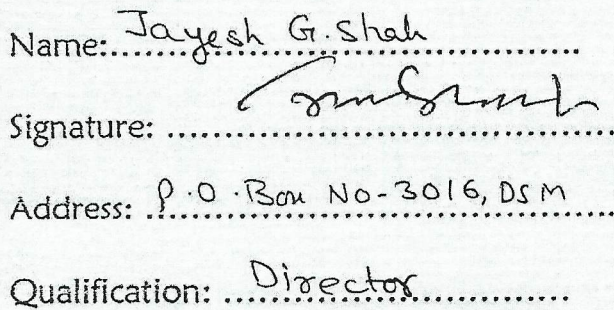 Name: Jayesh G. Shah
Signature:
Address: P.O. Box No-3016, DSM
Qualification: Director